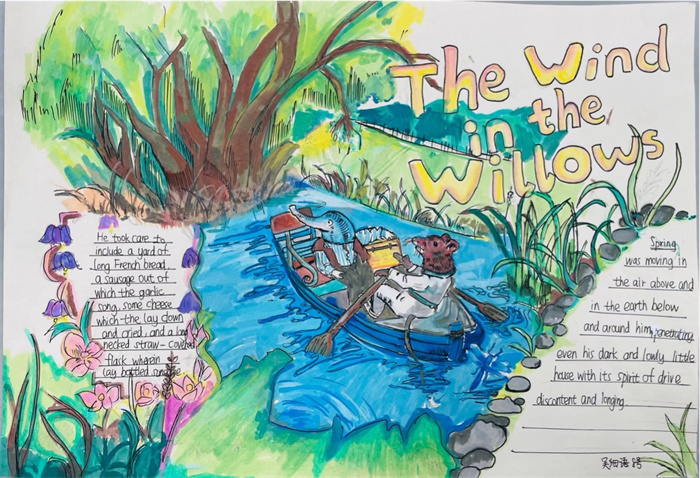 The Wind
in the
Willows
He took care to
include a yard of
long French bread,
a sausage out of
which the garlic
song, some cheese
which the lay down
and cried, and a long
necked straw-covered
flask wherein
lay bottled sunshine
Spring
was moving in
the air above and
in the earth below
and around him, penetrating
even his dark and lowly little
house with its spirit of drive
discontent and longing